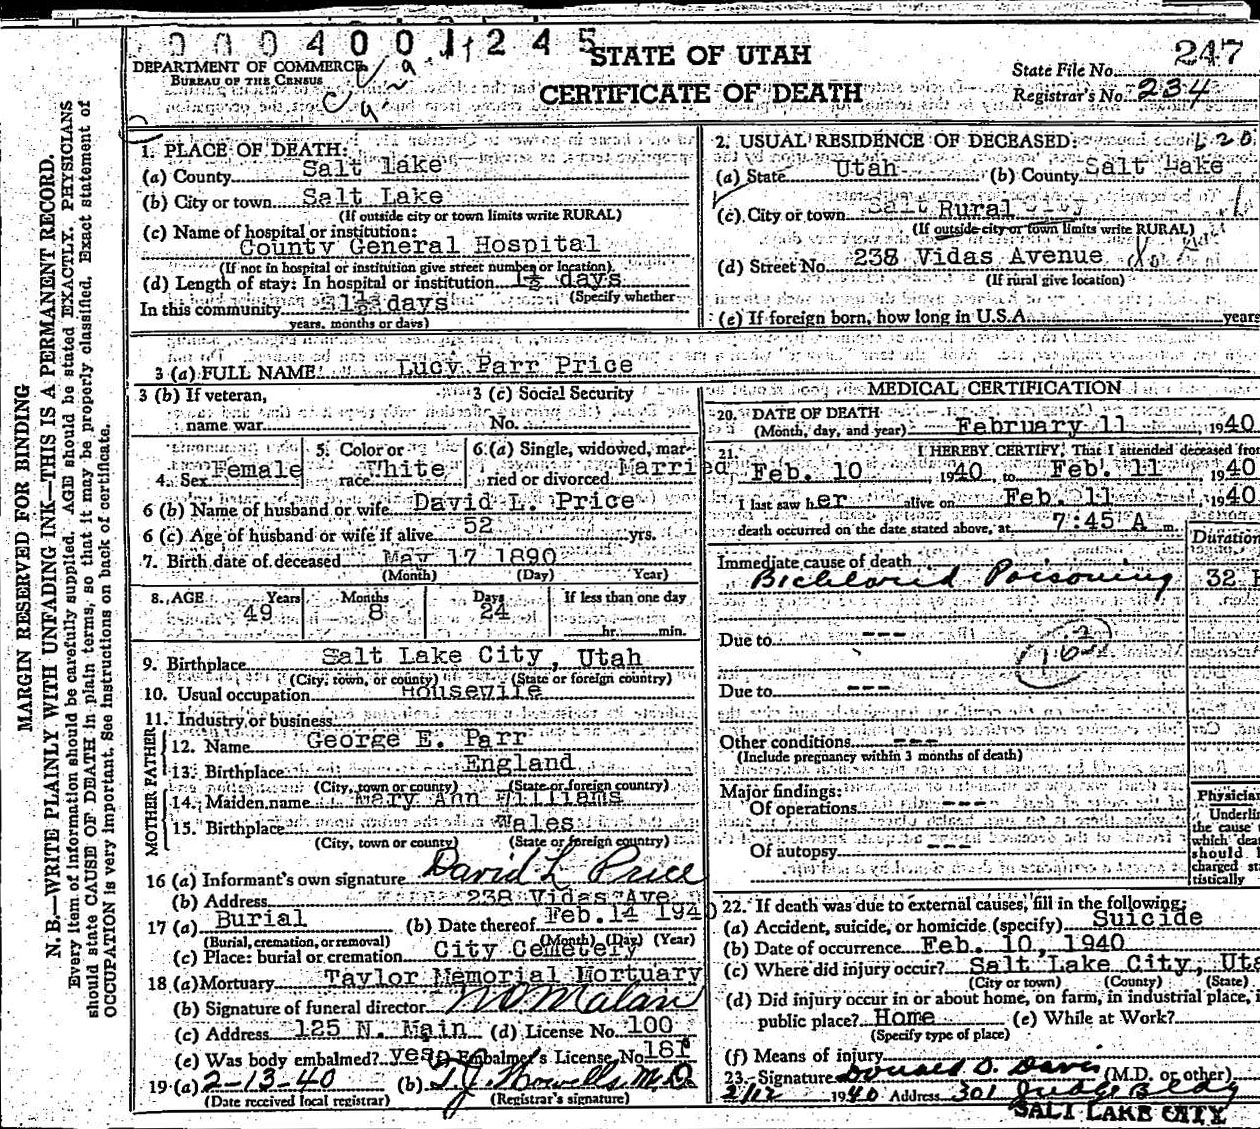 0004001245
STATE OF UTAH
CERTIFICATE OF DEATH
DEPARTMENT OF COMMERCE
BUREAU OF THE CENSUS
247
State File No.
Registrar's No. 234
MARGIN RESERVED FOR BINDING
N. B.—WRITE PLAINLY WITH UNFADING INK—THIS IS A PERMANENT RECORD.
Every item of information should be carefully supplied. AGE should be stated EXACTLY. PHYSICIANS
should state CAUSE OF DEATH in plain terms, so that it may be properly classified. Exact statement of
OCCUPATION is very important. See instructions on back of certificate.
1. PLACE OF DEATH:
(a) County Salt lake
(b) City or town Salt Lake
(If outside city or town limits write RURAL)
(c) Name of hospital or institution:
County General Hospital
(If not in hospital or institution give street number or location)
(d) Length of stay: In hospital or institution 1½ days
(Specify whether
In this community 1½ days
years, months or days)
2. USUAL RESIDENCE OF DECEASED:
(a) State Utah (b) County Salt Lake
(c) City or town Rural
(If outside city or town limits write RURAL)
(d) Street No. 238 Vidas Avenue
(If rural give location)
(e) If foreign born, how long in U.S.A. years
3 (a) FULL NAME Lucy Parr Price
3 (b) If veteran, name war
3 (c) Social Security No.
4. Sex Female
5. Color or race White
6 (a) Single, widowed, married or divorced Married
6 (b) Name of husband or wife David L. Price
6 (c) Age of husband or wife if alive 52 yrs.
7. Birth date of deceased May 17 1890
(Month) (Day) Year)
8. AGE Years Months Days If less than one day
49 8 24 hr. min.
9. Birthplace Salt Lake City, Utah
(City, town, or county) (State or foreign country)
10. Usual occupation Housewife
11. Industry or business
FATHER
12. Name George E. Parr
13. Birthplace England
(City, town or county) (State or foreign country)
MOTHER
14. Maiden name Mary Ann Williams
15. Birthplace Wales
(City, town or county) (State or foreign country)
16 (a) Informant's own signature David L Price
(b) Address 238 Vidas Ave.
17 (a) Burial (b) Date thereof Feb. 14 1940
(Burial, cremation, or removal) (Month) (Day) (Year)
(c) Place: burial or cremation City Cemetery
18 (a) Mortuary Taylor Memorial Mortuary
(b) Signature of funeral director
(c) Address 125 N. Main (d) License No. 100
(e) Was body embalmed? yes (f) Embalmer's License No. 181
19 (a) 2-13-40 (b) T.J. Howells M.D.
(Date received local registrar) (Registrar's signature)
MEDICAL CERTIFICATION
20. DATE OF DEATH
(Month, day, and year) February 11 1940
21. I HEREBY CERTIFY, That I attended deceased from
Feb. 10 1940 to Feb. 11 1940
I last saw her alive on Feb. 11 1940
death occurred on the date stated above, at 7:45 A m.
Duration
Immediate cause of death
Bichlorid Poisoning 32 H
Due to ---
Due to ---
Other conditions ---
(Include pregnancy within 3 months of death)
Major findings:
Of operations ---
Of autopsy ---
Physician
Underline
the cause
which dea
should
charged st
tistically
22. If death was due to external causes, fill in the following:
(a) Accident, suicide, or homicide (specify) Suicide
(b) Date of occurrence Feb. 10, 1940
(c) Where did injury occur? Salt Lake City, Uta
(City or town) (County) (State)
(d) Did injury occur in or about home, on farm, in industrial place, i
public place? Home (e) While at Work?
(Specify type of place)
(f) Means of injury
23. Signature Donald D. Davis (M.D. or other)
2/12 1940 Address 301 Judge Bldg
SALT LAKE CITY